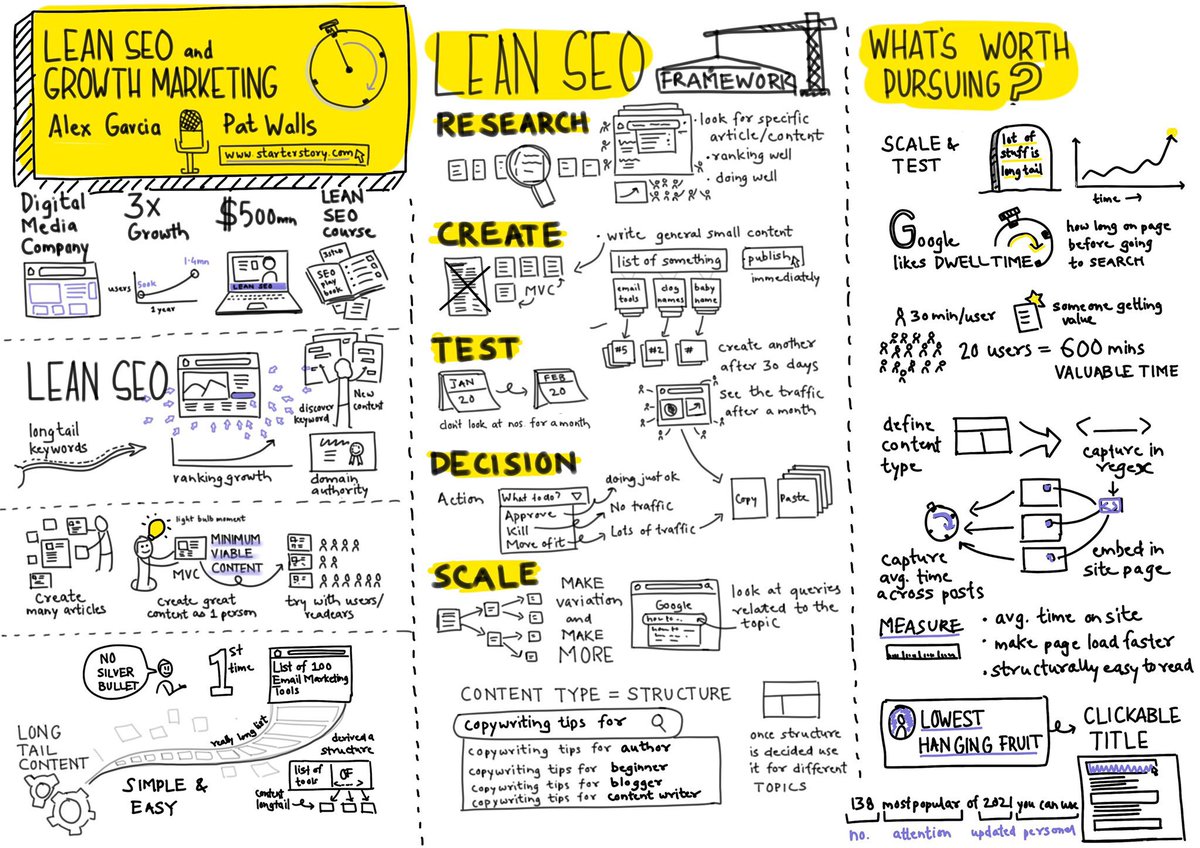 LEAN SEO and
GROWTH MARKETING
Alex Garcia
Pat Walls
www.starterstory.com
Digital
Media
Company
3x
Growth
$500mn
LEAN
SEO
course
users
500k
1.4mn
1 year
LEAN SEO
SEO
play
book
LEAN SEO
discover
keyword
New
content
longtail
keywords
ranking growth
domain
authority
Create
many articles
light bulb moment
MVC
MINIMUM
VIABLE
CONTENT
Create great
content as 1 person
try with users/
readears
NO
SILVER
BULLET
1st
time
List of 100
Email Marketing
Tools
LONG
TAIL
CONTENT
really long list
SIMPLE &
EASY
derived a
structure
list of
tools
OF
<---->
content
longtail
LEAN SEO
FRAMEWORK
RESEARCH
• look for specific
article/content
• ranking well
• doing well
CREATE
• write general small content
MVC
list of something
publish
immediately
email
tools
dog
names
baby
name
TEST
#5
#2
#
create another
after 30 days
JAN
20
FEB
20
don't look at nos. for a month
see the traffic
after a month
DECISION
Action
What to do?
Approve
Kill
Move of it
doing just ok
No traffic
Lots of traffic
Copy
Paste
SCALE
MAKE
variation
and
MAKE
MORE
Google
how to...
how to ...
look at queries
related to the
topic
CONTENT TYPE = STRUCTURE
copywriting tips for
copywriting tips for author
copywriting tips for beginner
copywriting tips for blogger
copywriting tips for content writer
once structure
is decided use
it for different
TOPICS
WHAT'S WORTH
PURSUING?
SCALE &
TEST
lot of
stuff is
long tail
time →
Google
likes DWELL TIME
how long on page
before going
to SEARCH
30 min/user
someone getting
value
20 users = 600 mins
VALUABLE TIME
define
content
type
< >
capture in
regex
< >
capture
avg. time
across posts
embed in
site page
MEASURE
• avg. time on site
• make page load faster
• structurally easy to read
LOWEST
HANGING FRUIT
CLICKABLE
TITLE
138 most popular of 2021 you can use
no. attention updated personal